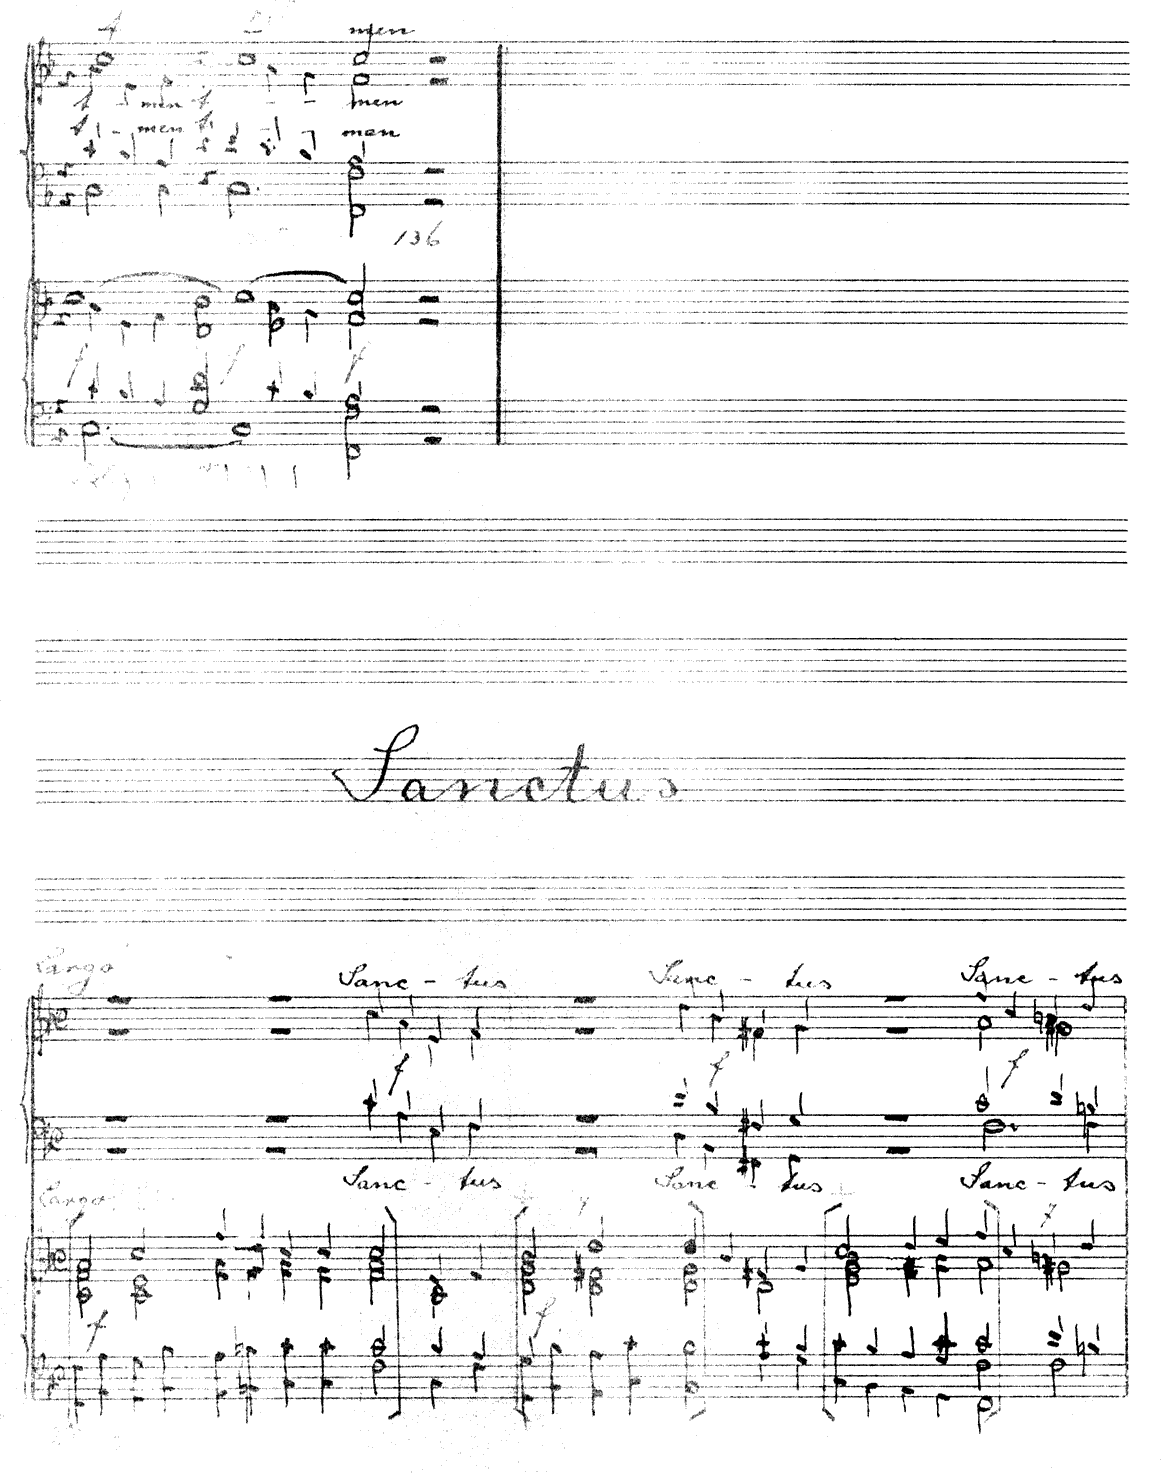 A men
A - men A - - men
A - men A - - men
136
f f f
Sanctus
Largo Sanc - tus Sanc - tus Sanc - tus
f f f
Sanc - tus Sanc - tus Sanc - tus
Largo
f f f